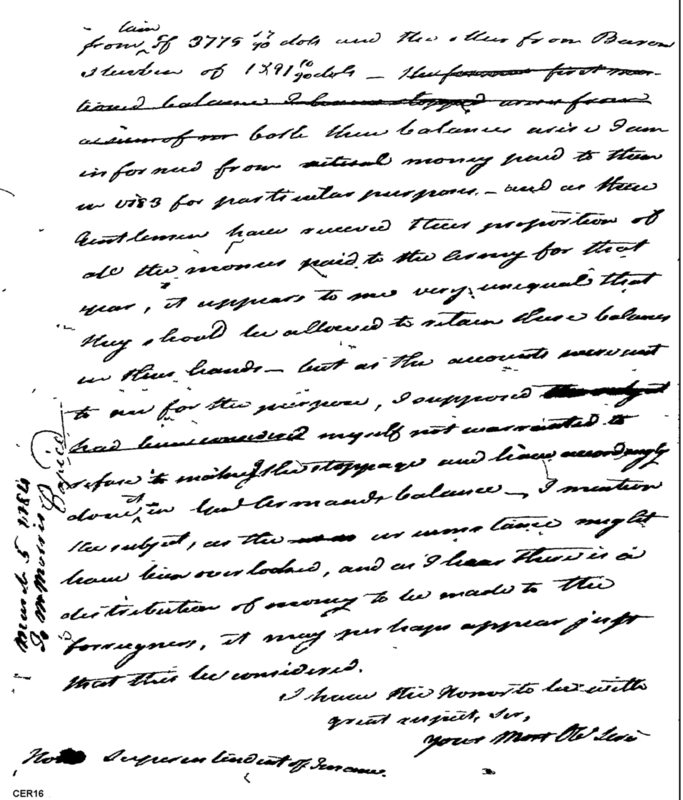 him
from ^ of 3775 17/90 dols and the other from Baron
Steuben of 1891 10/90 dols – the former first men-
tioned balance I have stopped arises from
a sum of m both these balances arise I am
informed from money paid to them
in 1783 for particular purposes. – and as these
Gentlemen have received their proportion of
all the monies paid to the Army for that
year, it appears to me very unequal that
they should be allowed to retain these balances
in their hands – but as the accounts were sent
to me for the purpose, I supposed the subject
had been considered myself not warranted to
refuse making the stoppage and have accordingly
done ^ it in balance –, I mention
the subject, as the circumstance might
have been overlooked, and as I hear there is a
distribution of money to be made to the
foreigners, it may perhaps appear just
that this be considered.
I have the Honor to be with
great respect, Sir,
Your Most Obt Servt
Superintendent of Finance.
March 5 1784
To Mr Morris
Copied
CER16